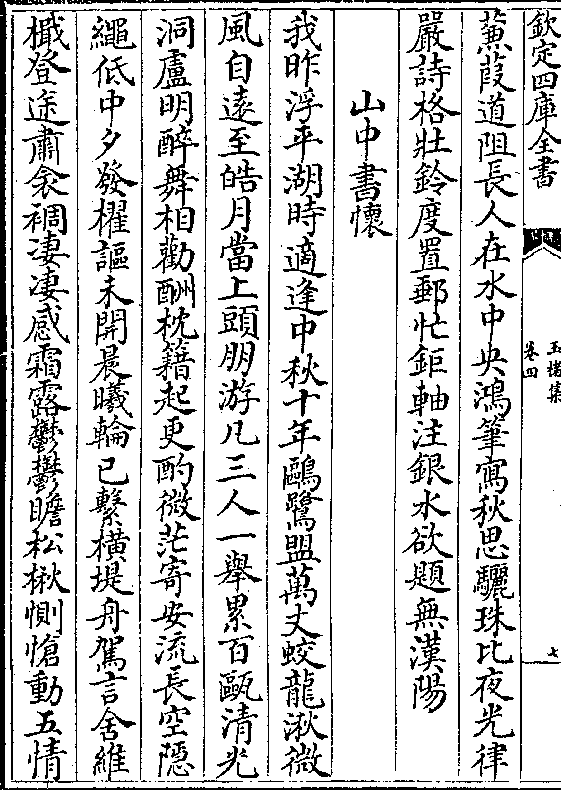 欽定四庫全書
玉楮集
卷四
七
蒹葭道阻長人在水中央鴻筆寫秋思驪珠比夜光律
嚴詩格壯鈴度置郵忙鉅軸注銀水欲題無漢陽
山中書懷
我昨浮平湖時適逢中秋十年鷗鷺盟萬丈蛟龍湫微
風自遠至皓月當上頭朋游凡三人一舉累百甌清光
洞盧明醉舞相勸酬枕藉起更酌微茫寄安流長空隱
繩低中夕發櫂謳未開晨曦輪已繫橫堤舟駕言舍維
檥登途肅衾裯淒淒感霜露鬱鬱瞻松楸惻愴動五情